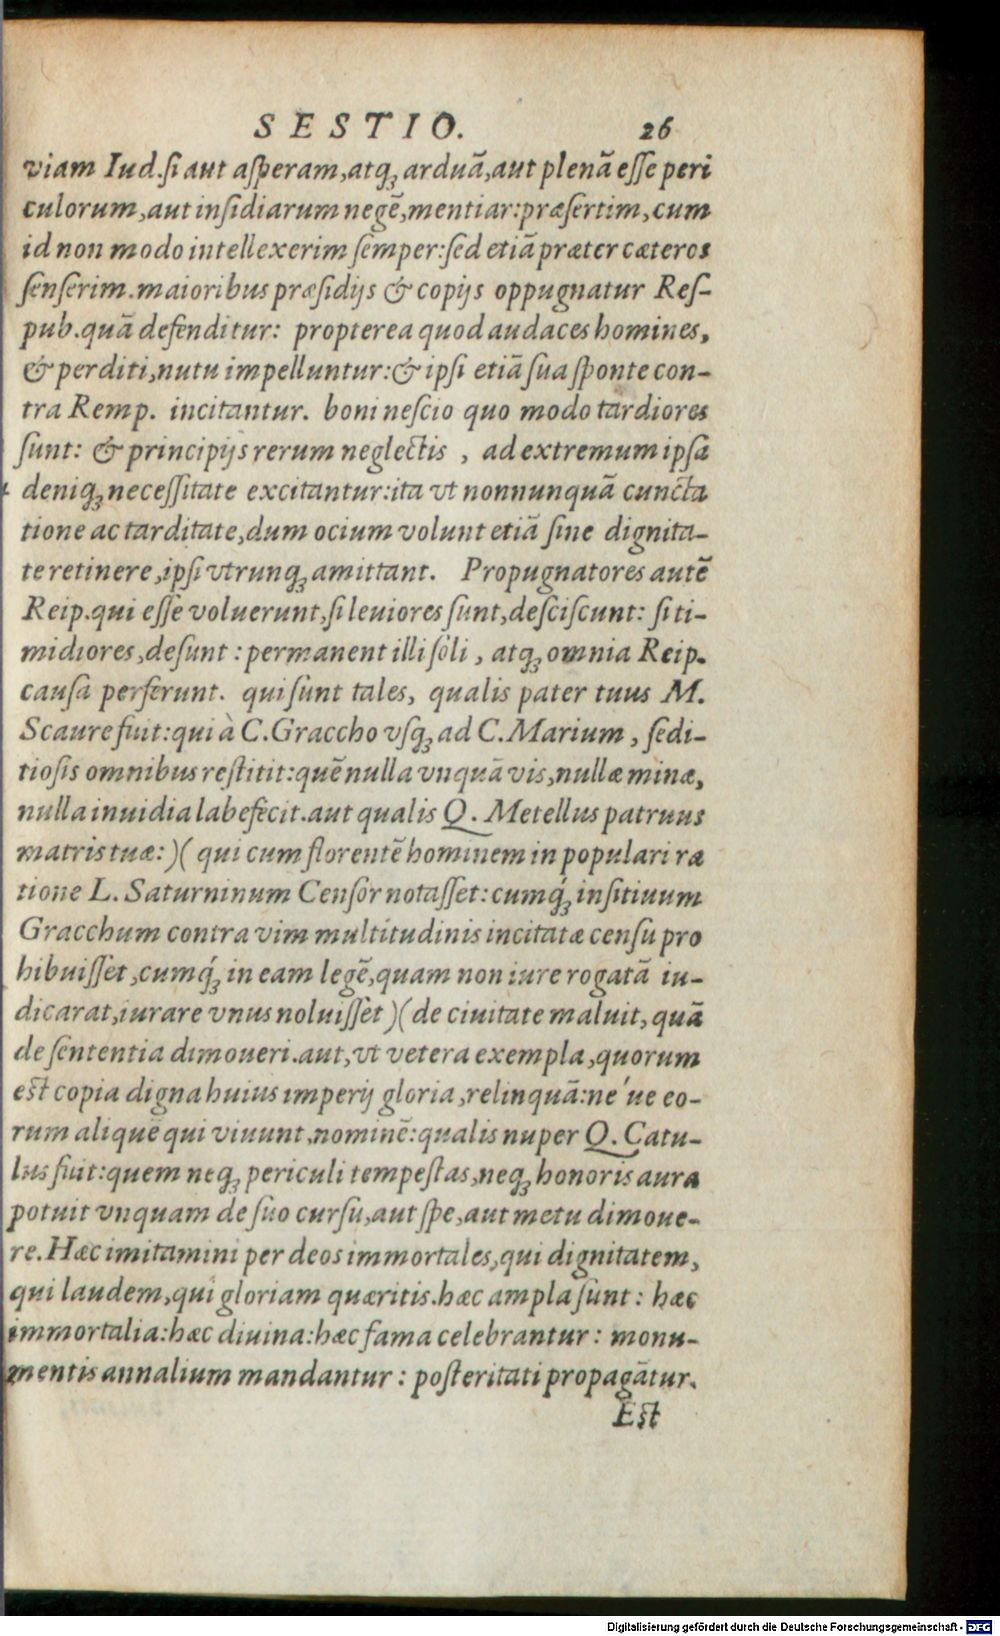 SESTIO. 26
viam Iud.ſi aut aſperam,atqꝫ arduā,aut plenā eſſe peri
culorum,aut inſidiarum negē,mentiar:præſertim,cum
id non modo intellexerim ſemper:ſed etiā præter cæteros
ſenſerim.maioribus præſidijs & copijs oppugnatur Reſ-
pub.quā defenditur: propterea quod audaces homines,
& perditi,nutu impelluntur:& ipſi etiā ſua ſponte con-
tra Remp. incitantur. boni neſcio quo modo tardiores
ſunt: & principijs rerum neglectis , ad extremum ipſa
deniqꝫ neceſſitate excitantur:ita vt nonnunquā cuncta
tione ac tarditate,dum ocium volunt etiā ſine dignita-
te retinere,ipſi vtrunqꝫ amittant. Propugnatores autē
Reip.qui eſſe voluerunt,ſi leuiores ſunt,deſciſcunt: ſi ti-
midiores,deſunt : permanent illi ſoli , atqꝫ omnia Reip.
cauſa perferunt. qui ſunt tales, qualis pater tuus M.
Scaure fuit:qui à C.Graccho vſqꝫ ad C.Marium , ſedi-
tioſis omnibus reſtitit:quē nulla vnquā vis,nullæ minæ,
nulla inuidia labefecit.aut qualis Q. Metellus patruus
matris tuæ:)( qui cum florentē hominem in populari ra
tione L. Saturninum Cenſor notaſſet:cumqꝫ́ inſitiuum
Gracchum contra vim multitudinis incitatæ cenſu pro
hibuiſſet,cumqꝫ́ in eam legē,quam non iure rogatā iu-
dicarat,iurare vnus noluiſſet )( de ciuitate maluit, quā
de ſententia dimoueri.aut,vt vetera exempla,quorum
eſt copia digna huius imperij gloria,relinquā:ne ́ue eo-
rum aliquē qui viuunt,nominē:qualis nuper Q. Catu-
lus fuit:quem neqꝫ periculi tempeſtas,neqꝫ honoris aura
potuit vnquam de ſuo curſu,aut ſpe,aut metu dimoue-
re.Hæc imitamini per deos immortales,qui dignitatem,
qui laudem,qui gloriam quæritis.hæc ampla ſunt: hæc
immortalia:hæc diuina:hæc fama celebrantur: monu-
mentis annalium mandantur : poſteritati propagātur.
Eſt
Digitalisierung gefördert durch die Deutsche Forschungsgemeinschaft - DFG